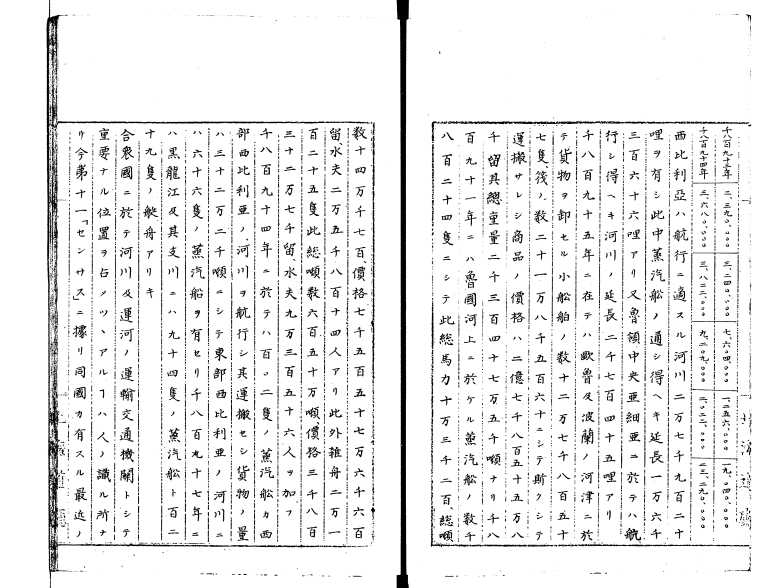 千八百九十三年 二、三九〇、〇〇〇 三、二四〇、〇〇〇 七、六〇四、〇〇〇 一、二五六、〇〇〇 一九、〇四〇、〇〇〇
千八百九十四年 三、六八〇、〇〇〇 三、八二二、〇〇〇 九、二〇九、〇〇〇 二、〇二二、〇〇〇 二三、二九〇、〇〇〇
西比利亞ハ航行ニ適スル河川二万七千九百二十
哩ヲ有シ此中蒸汽船ノ通シ得ヘキ延長一万六千
三百六十六哩アリ又魯領中央亜細亜ニ於テハ航
行シ得ヘキ河川ノ延長二千七百四十五哩アリ
千八百九十五年ニ在テハ歐魯及波蘭ノ河津ニ於
テ貨物ヲ卸セル小船舶ノ数十二万七千八百五十
七隻筏ノ数二十一万八千五百六十ニシテ斯クシテ
運搬サレシ商品ノ價格ハ二億七千八百五十五万八
千留其總重量二千三百四十七万五千噸ナリ千八
百九十一年ニハ魯國河上ニ於ケル蒸汽船ノ数千
八百二十四隻ニシテ此総馬力十万三千二百、総噸
数十四万千七百、價格七千五百五十七万六千六百
留、水夫二万五千八百十四人アリ此外雑舟二万一
百二十五隻此総噸数六百五十万噸價格三千八百
三十二万七千留水夫九万三百五十六人ヲ加フ
千八百九十四年ニ於テハ百〇二隻ノ蒸汽船カ西
部西比利亜ノ河川ヲ航行シ其運搬セシ貨物ノ量
ハ三十二万二千噸ニシテ東部西比利亜ノ河川ニ
ハ六十六隻ノ蒸汽船ヲ有セリ千八百九十七年ニ
ハ黒龍江及其支川ニハ九十四隻ノ蒸汽船ト百二
十九隻ノ艀舟アリキ
合衆國ニ於テ河川及運河ノ運輸交通機関トシテ
重要ナル位置ヲ占メツヽアルヿハ人ノ識ル所ナ
リ今第十一「センサス」ニ據リ同國カ有スル最近ノ